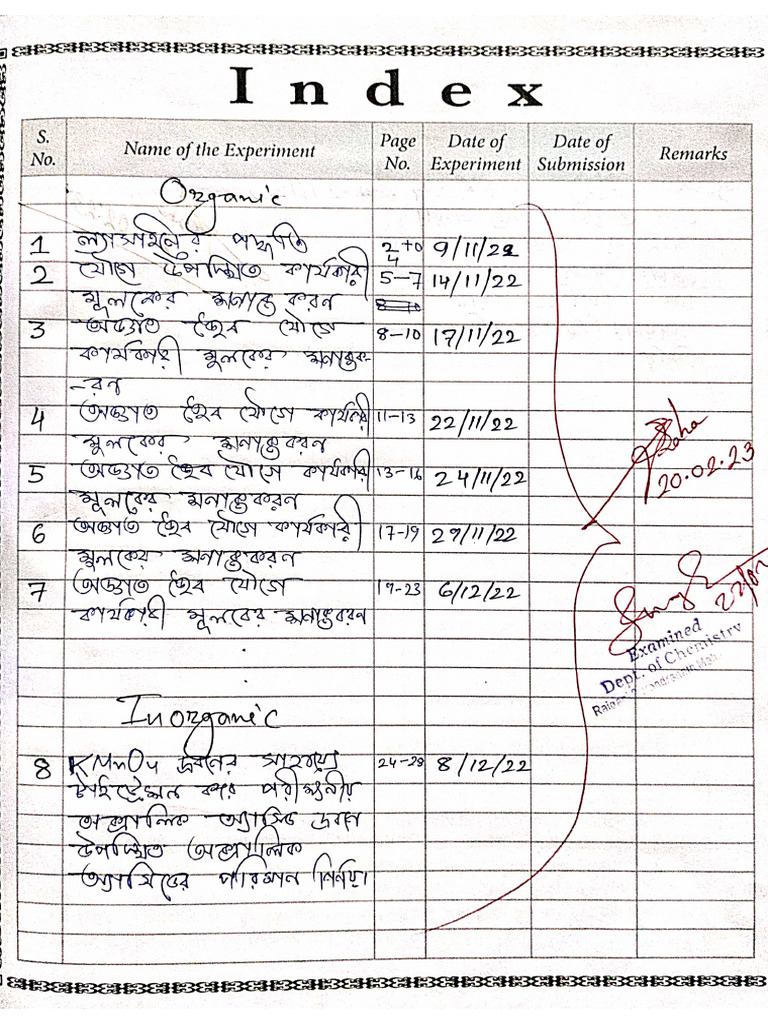 Index
S. No. Name of the Experiment Page No. Date of Experiment Date of Submission Remarks
Organic
1 ল্যাসাইনের পদ্ধতি 2 to 4 9/11/22
2 যৌগে উপস্থিত কার্যকারী 5-7 14/11/22
মূলকের সনাক্তকরন
3 অজ্ঞাত জৈব যৌগে 8-10 17/11/22
কার্যকারী মূলকের সনাক্তক-
-রন
4 অজ্ঞাত জৈব যৌগে কার্যকারী 11-13 22/11/22
মূলকের সনাক্তকরন
5 অজ্ঞাত জৈব যৌগে কার্যকারী 13-16 24/11/22
মূলকের সনাক্তকরন
6 অজ্ঞাত জৈব যৌগে কার্যকারী 17-19 29/11/22
মূলকের সনাক্তকরন
7 অজ্ঞাত জৈব যৌগে 19-23 6/12/22
কার্যকারী মূলকের সনাক্তকরন
Saha
20.02.23
Examined
Dept. of Chemistry
Inorganic
8 KMnO4 দ্রবনের সাহায্যে 24-28 8/12/22
টাইট্রেশন করে পরীক্ষনীয়
অক্সালিক অ্যাসিড দ্রবণে
উপস্থিত অক্সালিক
অ্যাসিডের পরিমান নির্নয়।